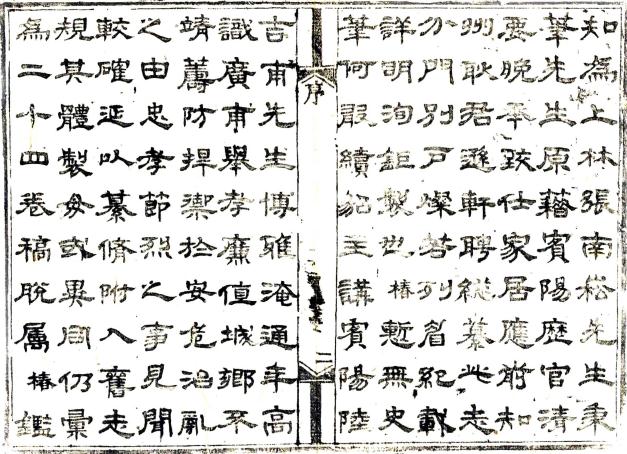 知為上林張南崧先生秉
筆先生原籍賓陽歷官清
要晚年致仕家居應前知
州耿君遜軒聘總纂此志
分門別戶燦若列眉紀載
詳明洵鉅製也椿慙無史
筆何敢續貂主講賓陽陸
序
二
吉甫先生博雅淹通年高
識廣甫舉孝廉值城鄉不
靖籌防捍禦於安危治亂
之由忠孝節烈之事見聞
較確延以纂脩附入舊志
規其體製毋或異同仍彙
為二十四卷稿脫屬椿鑑